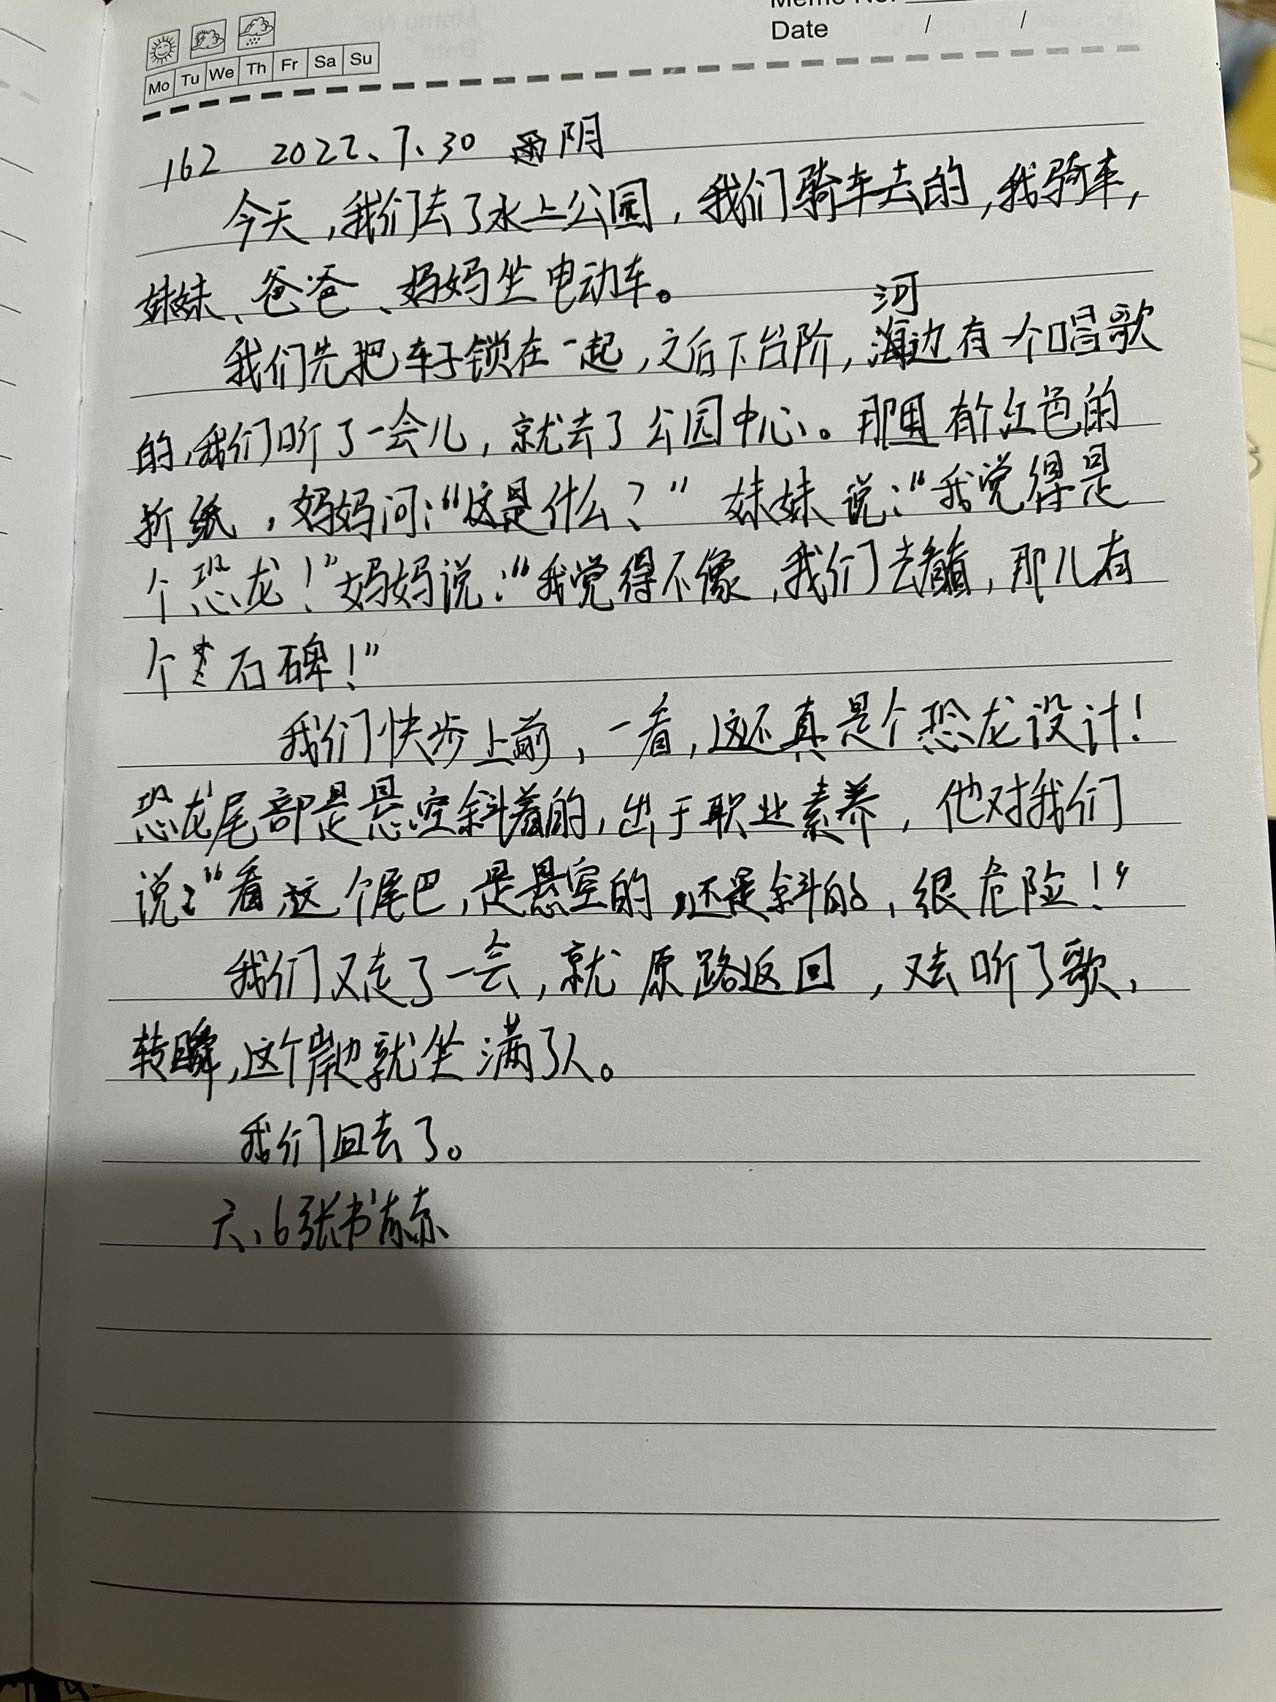 Memo No.
Date / /
Mo Tu We Th Fr Sa Su
162 2022、7、30 阴
今天，我们去了水上公园，我们骑车去的，我骑车，
妹妹、爸爸、妈妈坐电动车。
我们先把车子锁在一起，之后下台阶，河边有一个唱歌
的，我们听了一会儿，就去了公园中心。那里有个红色的
折纸，妈妈问：“这是什么？” 妹妹说：“我觉得是
个恐龙！”妈妈说：“我觉得不像，我们去瞧瞧，那儿有
个石碑！”
我们快步上前，一看，这还真是个恐龙设计！
恐龙尾部是悬空斜着的，出于职业素养，他对我们
说：“看这个尾巴，是悬空的，还是斜的，很危险！”
我们又走了一会，就原路返回，又去听了歌，
转瞬，这个岸边就坐满了人。
我们回去了。
六、6张书